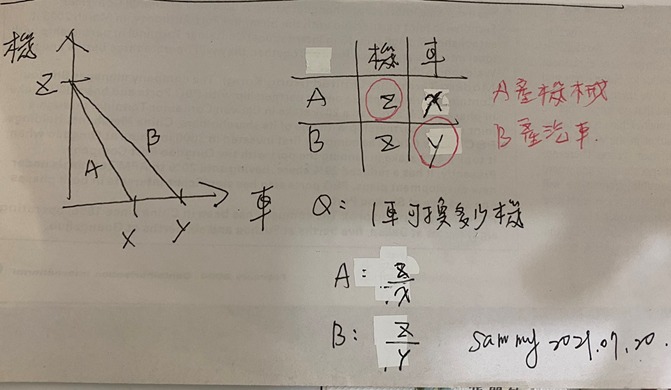 機
Z
A
B
X
Y
車
機 車
A Z X
B Z Y
A產機械
B產汽車.
Q: 1車可換多少機
A: Z/X
B: Z/Y
Sammy 2021.07.20.